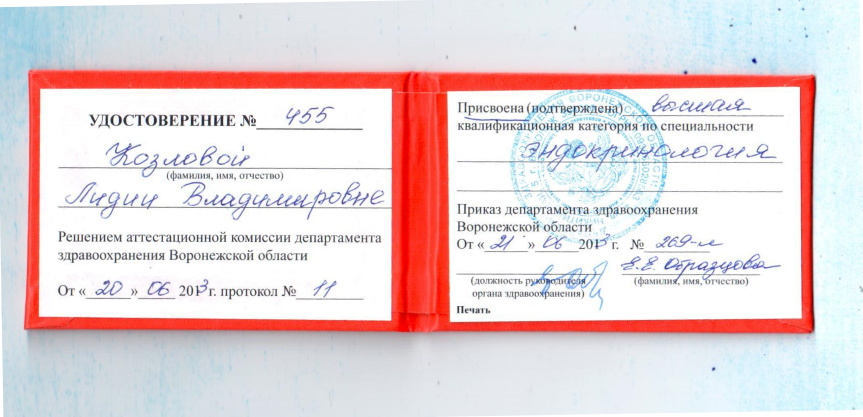 УДОСТОВЕРЕНИЕ № 455
Козловой
(фамилия, имя, отчество)
Лидии Владимировне
Решением аттестационной комиссии департамента
здравоохранения Воронежской области
От « 20 » 06 2013 г. протокол № 11
Присвоена (подтверждена) высшая
квалификационная категория по специальности
эндокринология
Приказ департамента здравоохранения
Воронежской области
От « 21 » 06 2013 г. № 269-л
Е.Е. Образцова
(должность руководителя
органа здравоохранения)
(фамилия, имя, отчество)
Печать